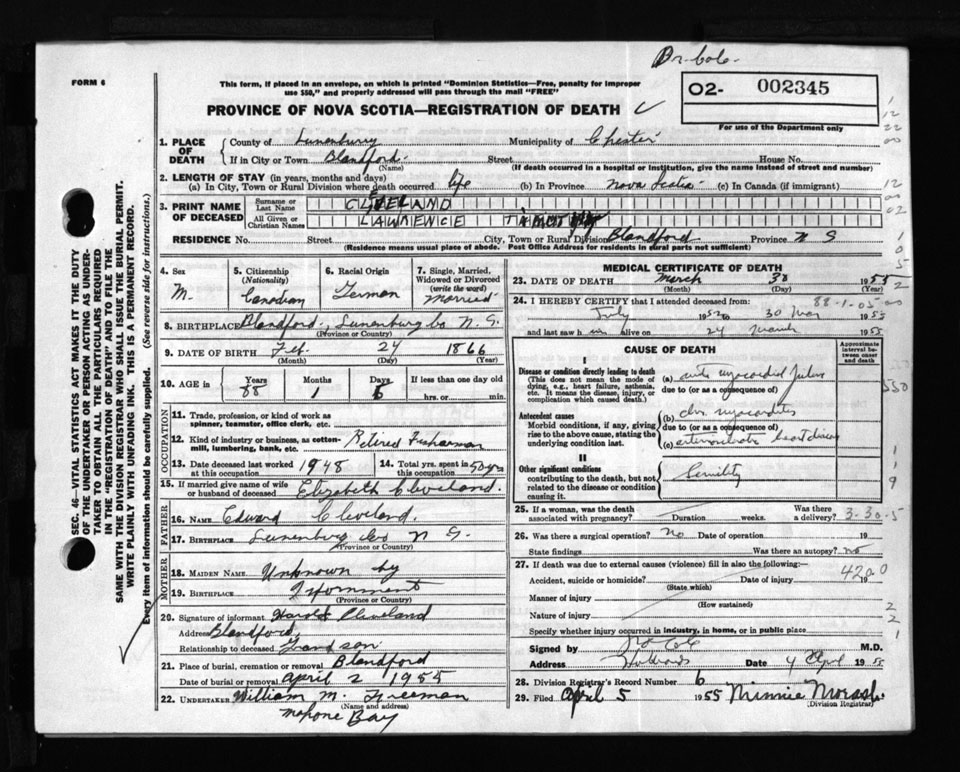 Dr. Cole
FORM 6
This form, if placed in an envelope, on which is printed "Dominion Statistics—Free, penalty for improper
use $50," and properly addressed will pass through the mail "FREE"
PROVINCE OF NOVA SCOTIA—REGISTRATION OF DEATH
O2- 002345
For use of the Department only
SEC. 46—VITAL STATISTICS ACT MAKES IT THE DUTY
OF THE UNDERTAKER OR PERSON ACTING AS UNDER-
TAKER TO OBTAIN ALL THE PARTICULARS REQUIRED
IN THE "REGISTRATION OF DEATH" AND TO FILE THE
SAME WITH THE DIVISION REGISTRAR WHO SHALL ISSUE THE BURIAL PERMIT.
WRITE PLAINLY WITH UNFADING INK. THIS IS A PERMANENT RECORD.
Every item of information should be carefully supplied. (See reverse side for instructions.)
1. PLACE OF DEATH
County of Lunenburg Municipality of Chester
If in City or Town Blandford Street House No.
(Name) (If death occurred in a hospital or institution, give the name instead of street and number)
2. LENGTH OF STAY (in years, months and days)
(a) In City, Town or Rural Division where death occurred life (b) In Province Nova Scotia (c) In Canada (if immigrant)
3. PRINT NAME OF DECEASED
Surname or Last Name CLEVELAND
All Given or Christian Names LAWRENCE
RESIDENCE No. Street City, Town or Rural Division Blandford Province N S
(Residence means usual place of abode. Post Office Address for residents in rural parts not sufficient)
4. Sex M.
5. Citizenship (Nationality) Canadian
6. Racial Origin German
7. Single, Married, Widowed or Divorced (write the word) married
8. BIRTHPLACE Blandford, Lunenburg Co N. S.
(Province or Country)
9. DATE OF BIRTH Feb. 24 1866
(Month) (Day) (Year)
10. AGE in Years 88 Months 1 Days 6 If less than one day old
hrs. or min.
OCCUPATION
11. Trade, profession, or kind of work as
spinner, teamster, office clerk, etc.
12. Kind of industry or business, as cotton-
mill, lumbering, bank, etc. Retired Fisherman
13. Date deceased last worked
at this occupation 1948
14. Total yrs. spent in
this occupation 50 yrs
15. If married give name of wife
or husband of deceased Elizabeth Cleveland.
FATHER
16. NAME Edward Cleveland.
17. BIRTHPLACE Lunenburg Co N S.
(Province or Country)
MOTHER
18. MAIDEN NAME Unknown by
19. BIRTHPLACE Informent
(Province or Country)
20. Signature of informant Harold Cleveland
Address Blandford
Relationship to deceased Grandson
21. Place of burial, cremation or removal Blandford
Date of burial or removal April 2 1955
22. UNDERTAKER William M. Freeman
(Name and address)
Mahone Bay
MEDICAL CERTIFICATE OF DEATH
23. DATE OF DEATH March 30 1955
(Month) (Day) (Year)
24. I HEREBY CERTIFY that I attended deceased from: 88-1-05
July 1952 to 30 Mar 1955
and last saw him alive on 24 March 1955
CAUSE OF DEATH
Approximate interval between onset and death
I
Disease or condition directly leading to death
(This does not mean the mode of
dying, e.g., heart failure, asthenia,
etc. It means the disease, injury, or
complication which caused death.)
(a) acute myocardial failure
due to (or as a consequence of)
Antecedent causes
Morbid conditions, if any, giving
rise to the above cause, stating the
underlying condition last.
(b) chr myocarditis
due to (or as a consequence of)
(c) arteriosclerotic heart disease
II
Other significant conditions
contributing to the death, but not
related to the disease or condition
causing it.
Senility
25. If a woman, was the death
associated with pregnancy? Duration weeks. Was there
a delivery? 3-30-5
26. Was there a surgical operation? No Date of operation 19
State findings Was there an autopsy? no
27. If death was due to external causes (violence) fill in also the following:—
Accident, suicide or homicide? Date of injury 19
4200
(State which)
Manner of injury
(How sustained)
Nature of injury
Specify whether injury occurred in industry, in home, or in public place
Signed by Cole M.D.
Address Hubbards Date 4 April 1955
28. Division Registrar's Record Number 6
29. Filed April 5 1955 Minnie Morash
(Division Registrar)